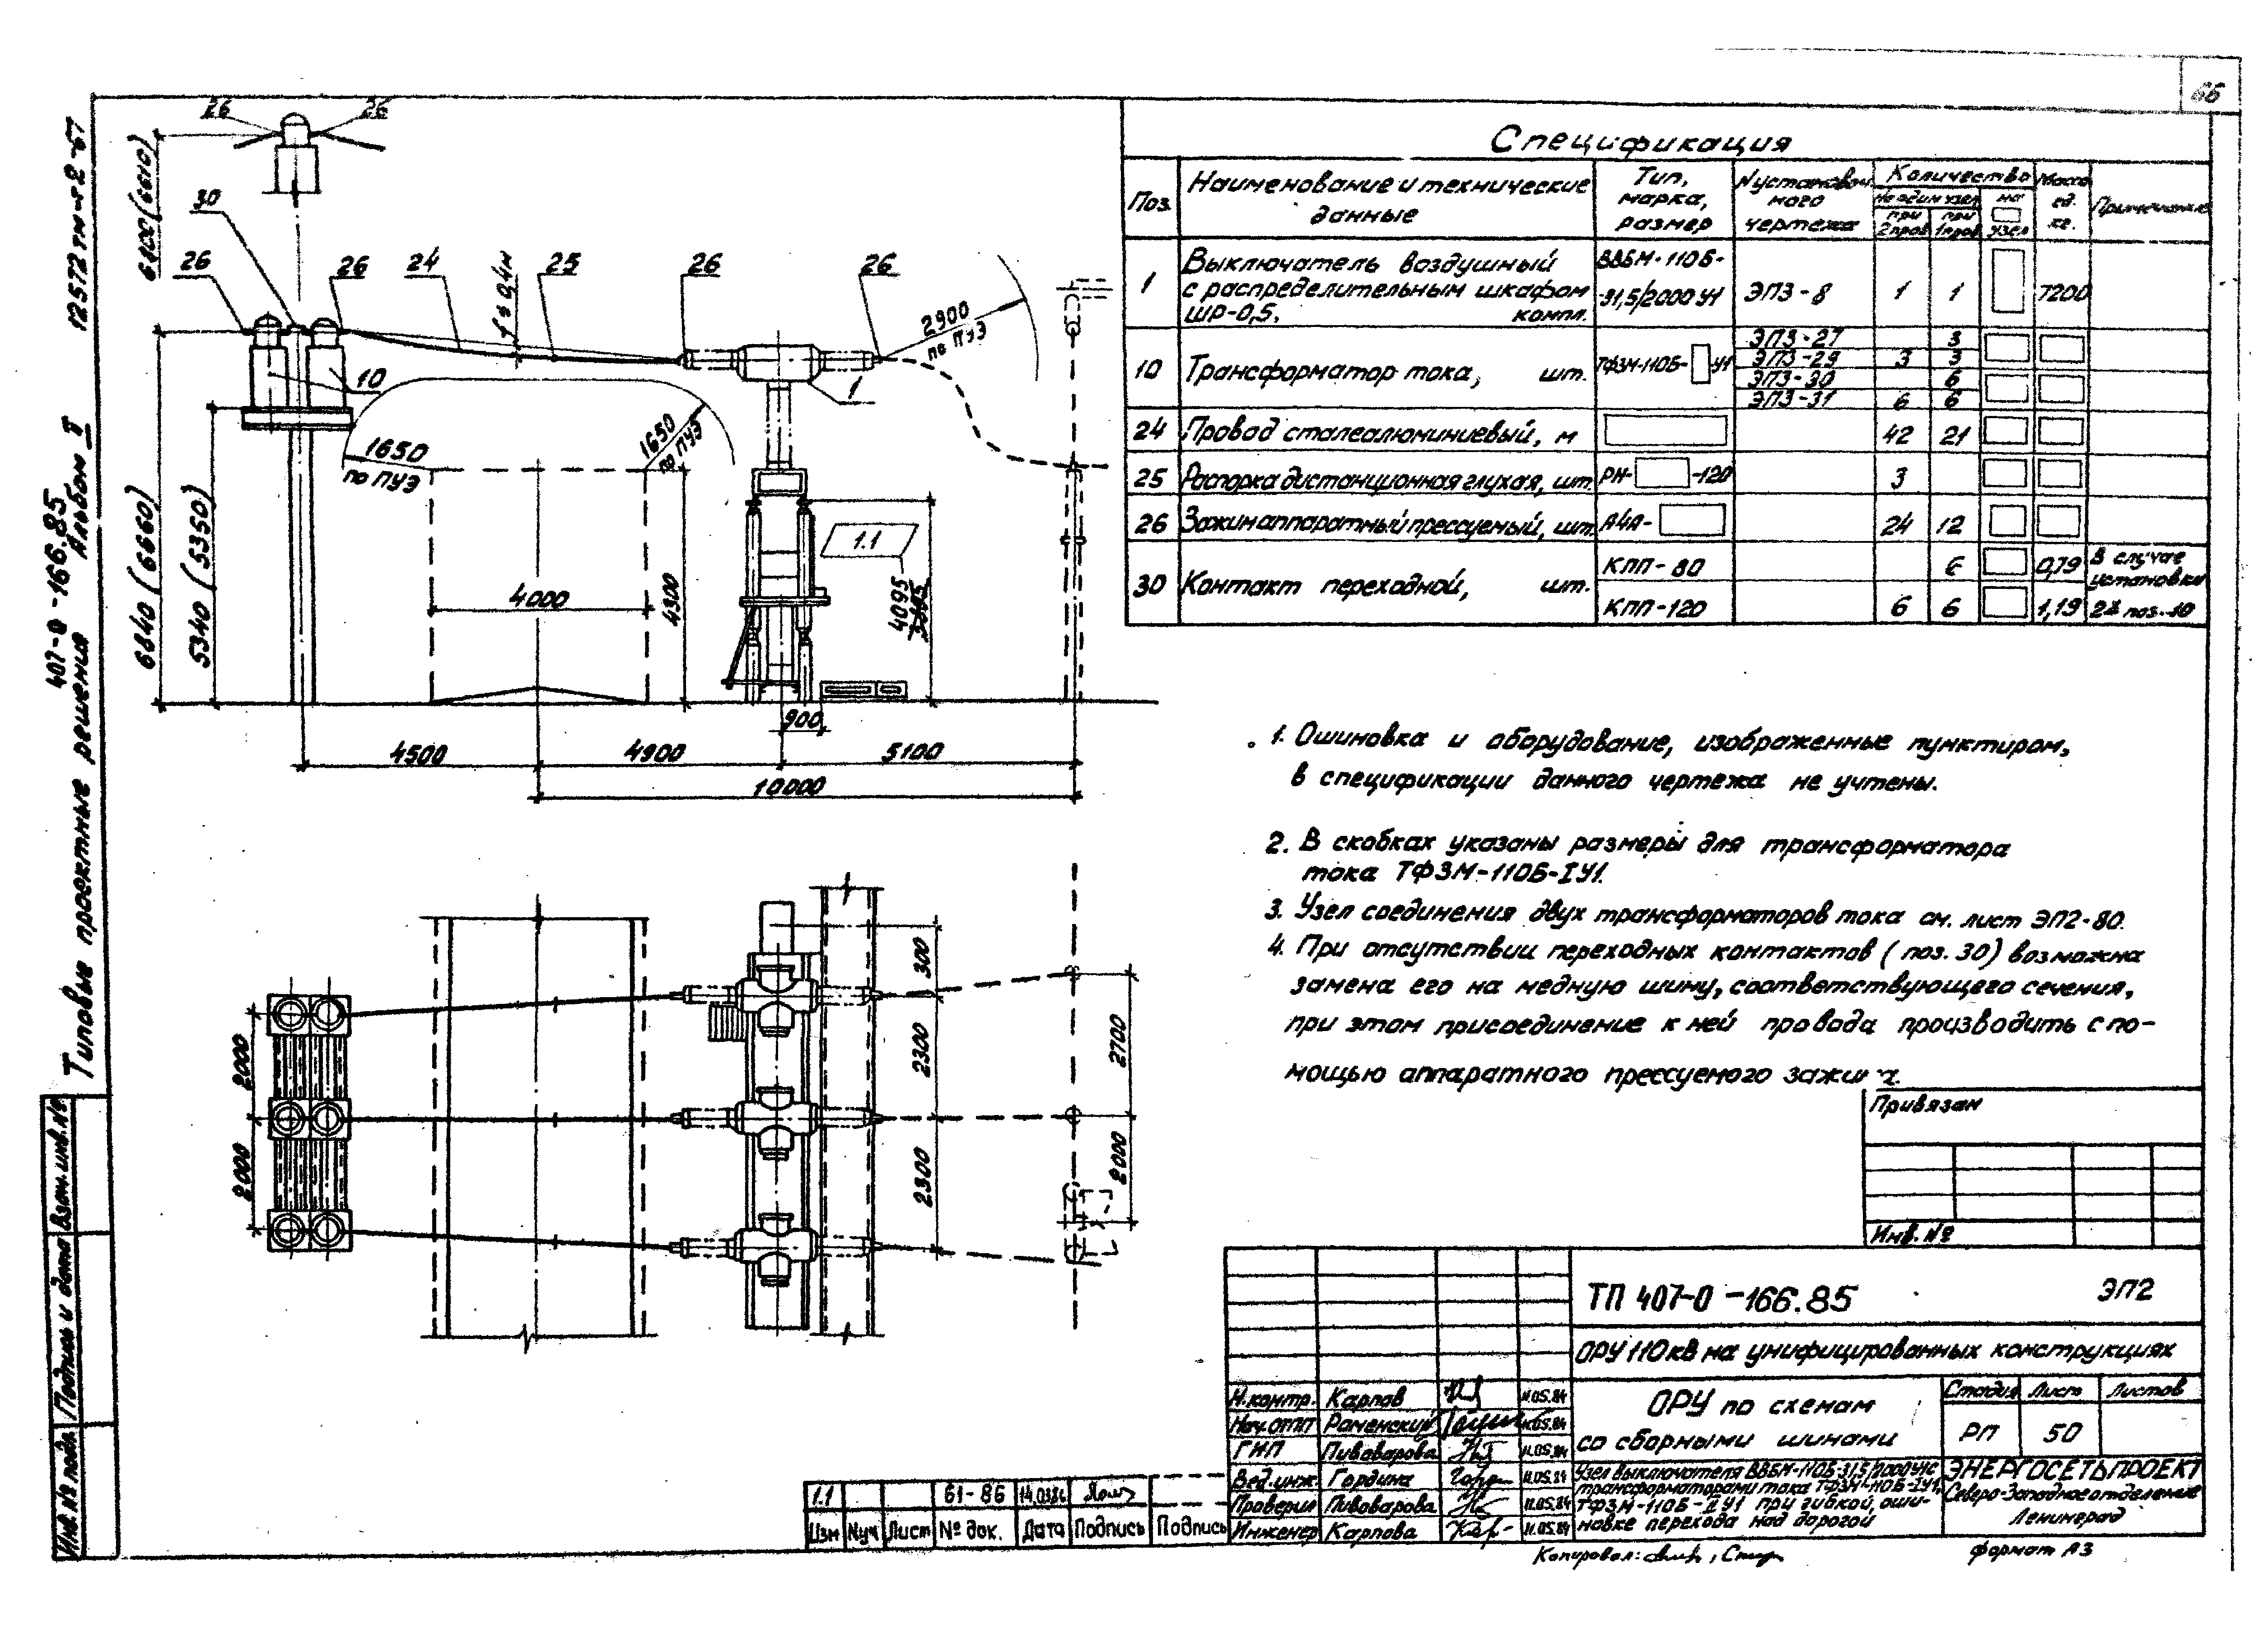 66
12572тм-т2-67
407-0-166.85
Альбом II
Типовые проектные решения
Взам. инв. №
Подпись и дата
Инв. № подл.
26
26
30
26
26
24
25
26
26
f≤0,4м
2900
по ПУЭ
10
1
1650
по ПУЭ
1650
по ПУЭ
1.1
6840 (6660)
5340 (5350)
4000
4300
4095
900
4500
4900
5100
10000
300
2300
2300
2700
2000
2000
2000
Спецификация
Поз.
Наименование и технические
данные
Тип,
марка,
размер
N установоч
ного
чертежа
Количество
На один узел
при
2 пров
при
1 пров
на
узел
Масса
ед.
кг.
Примечание
1
Выключатель воздушный
с распределительным шкафом
ШР-0,5. компл.
ВВБМ-110Б-
-31,5/2000 У1
ЭП3-8
1
1
7200
10
Трансформатор тока, шт.
ТФЗМ-110Б- У1
ЭП3-27
3
ЭП3-29
3
3
ЭП3-30
6
ЭП3-31
6
6
24
Провод сталеалюминиевый, м
42
21
25
Распорка дистанционная глухая, шт.
РН- -120
3
26
Зажим аппаратный прессуемый, шт.
А4А-
24
12
30
Контакт переходной, шт.
КПП-80
6
0,79
В случае
установки
КПП-120
6
6
1,19
2х поз. 10
1. Ошиновка и оборудование, изображенные пунктиром,
в спецификации данного чертежа не учтены.
2. В скобках указаны размеры для трансформатора
тока ТФЗМ-110Б-IУ1.
3. Узел соединения двух трансформаторов тока см. лист ЭП2-80.
4. При отсутствии переходных контактов (поз. 30) возможна
замена его на медную шину, соответствующего сечения,
при этом присоединение к ней провода производить с по-
мощью аппаратного прессуемого зажима.
Привязан
Инв. №
ТП 407-0-166.85
ЭП2
ОРУ 110 кВ на унифицированных конструкциях
Н. контр. Карпов 11.05.84
Нач. ОТП Раменский 11.05.84
ГИП Пивоварова 11.05.84
Вед. инж. Гордина 11.05.84
Проверил Пивоварова 11.05.84
Инженер Карпова 11.05.84
ОРУ по схемам
со сборными шинами
Стадия Лист Листов
РП 50
Узел выключателя ВВБМ-110Б-31,5/2000У1 с
трансформаторами тока ТФЗМ-110Б-IУ1,
ТФЗМ-110Б-IIУ1 при гибкой оши-
новке перехода над дорогой
ЭНЕРГОСЕТЬПРОЕКТ
Северо-Западное отделение
Ленинград
1.1 61-86 14.03.86
Изм Nуч Лист № док. Дата Подпись Подпись
Копировал:
формат А3